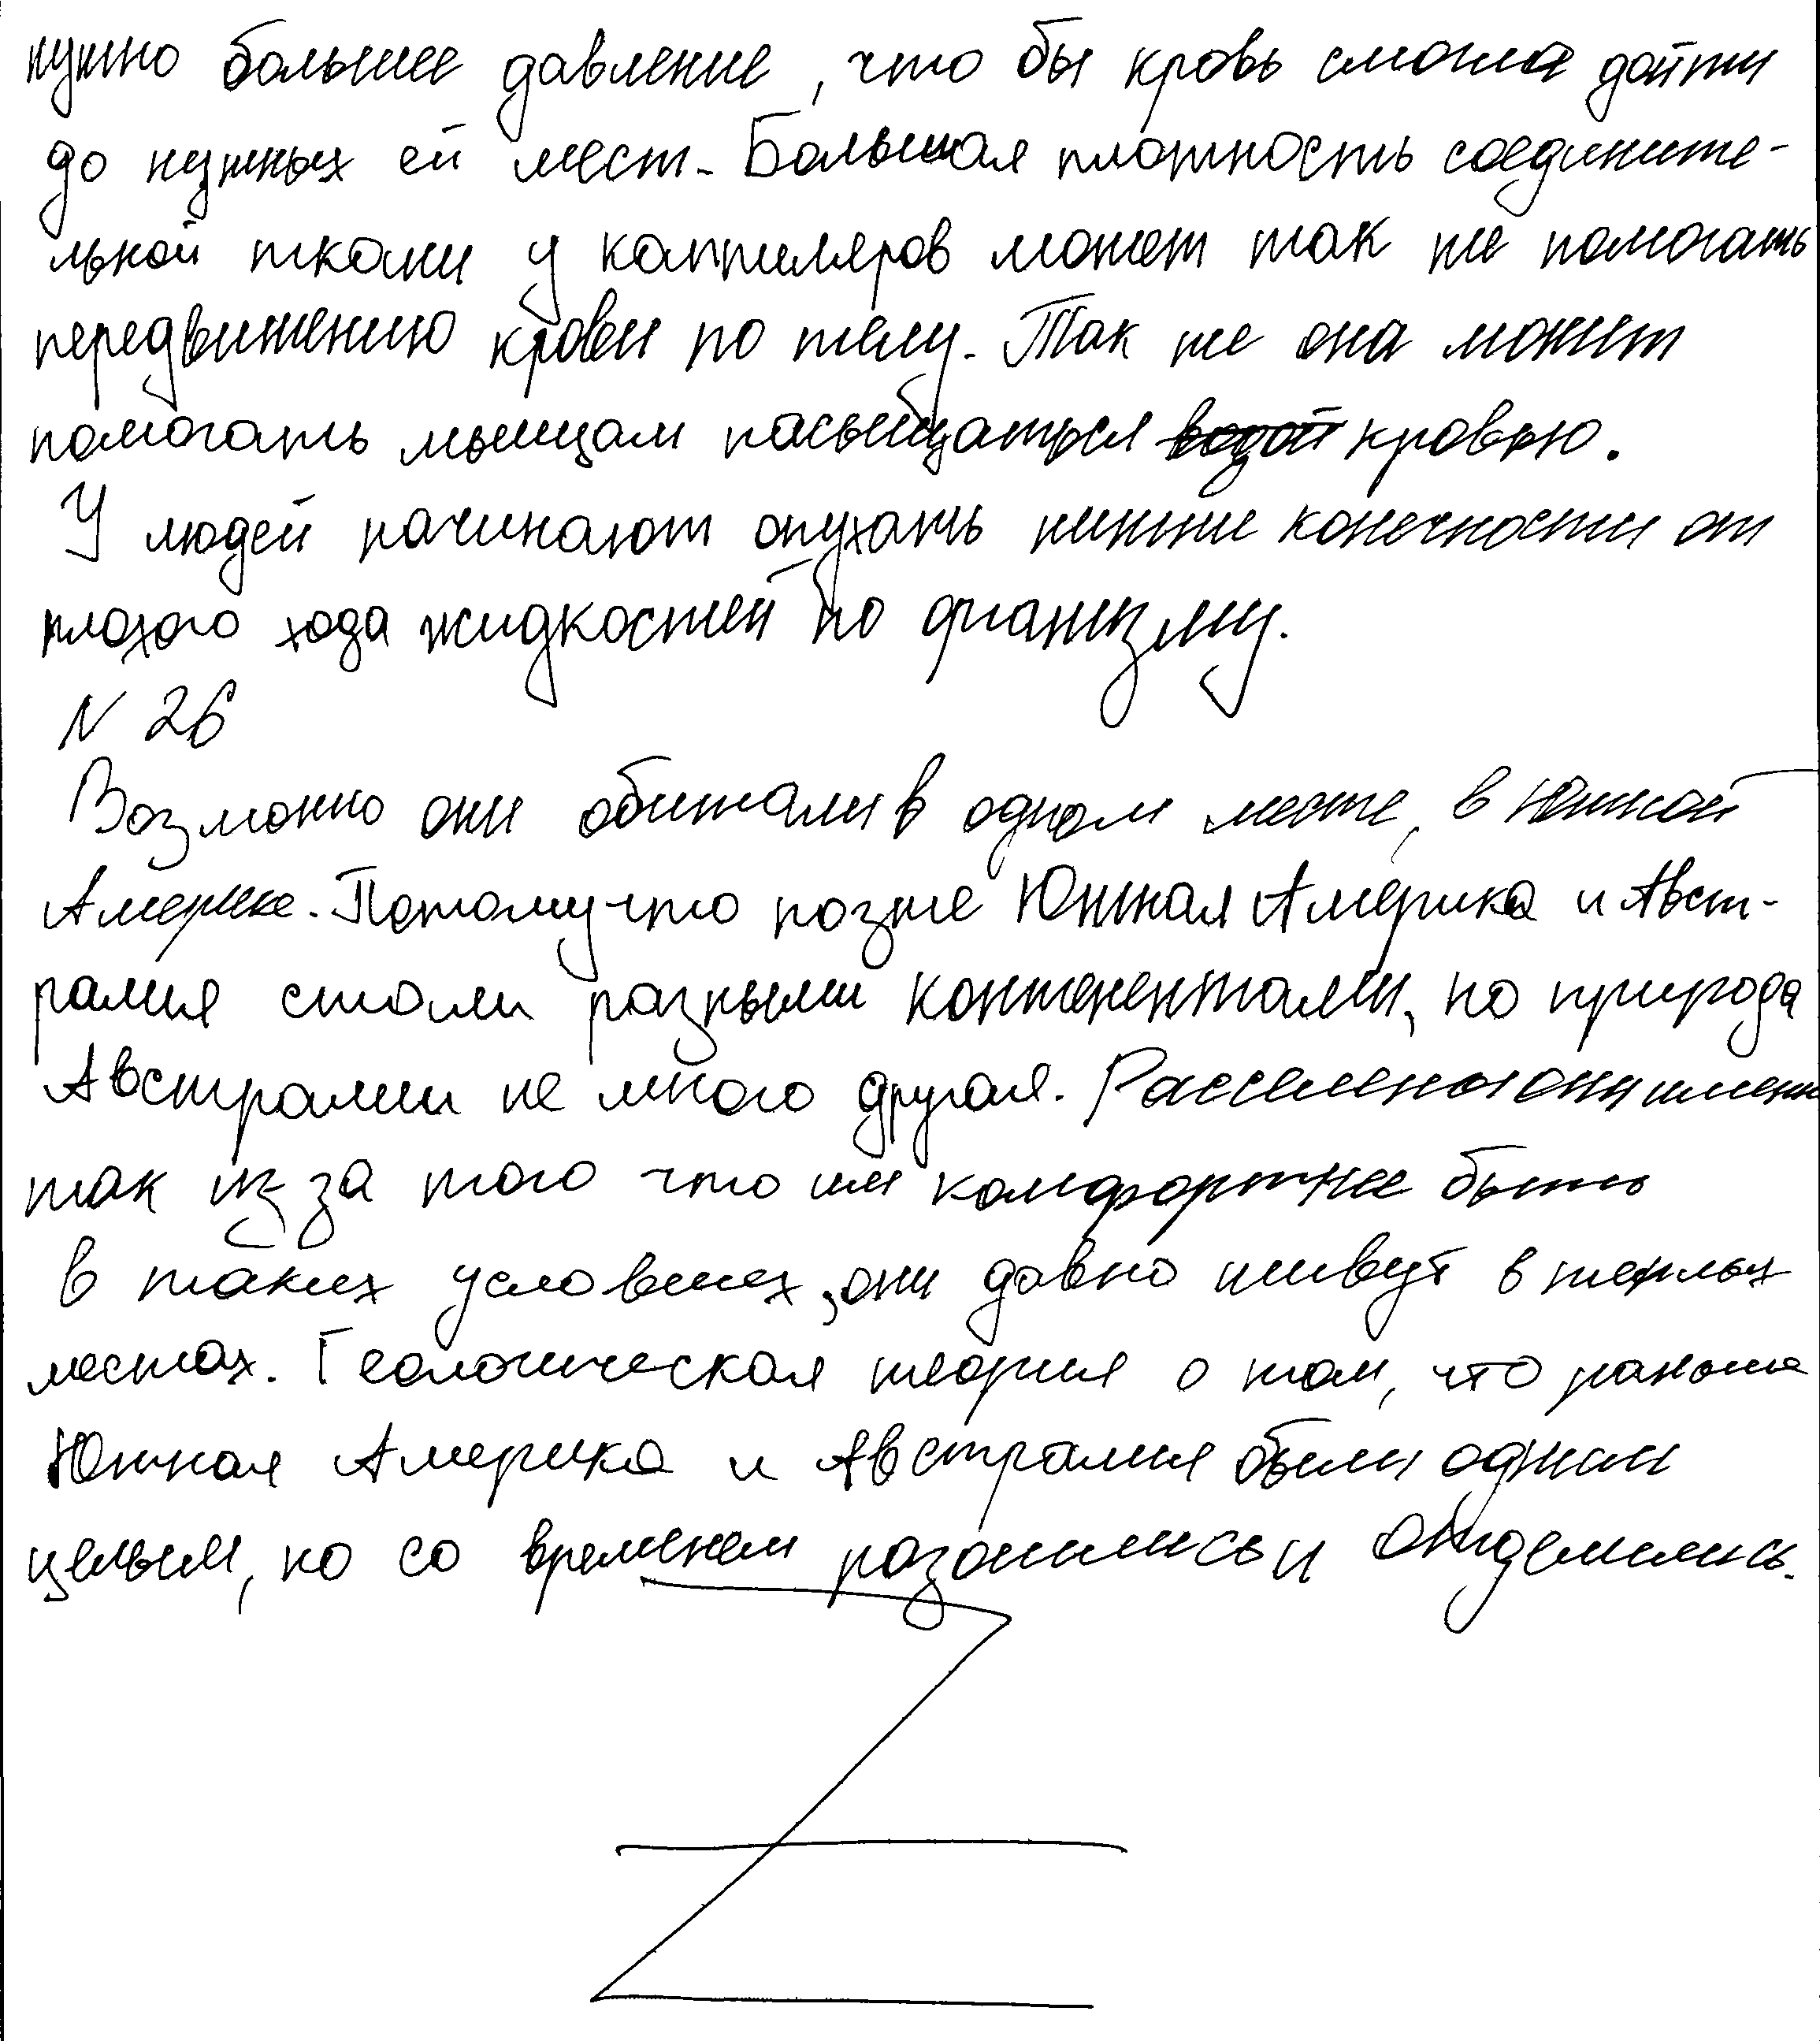 нужно большее давление, что бы кровь смогла дойти
до нужных ей мест. Большая плотность соедините-
льной ткани у каппиляров может так же помогать
передвижению крови по телу. Так же она может
помогать мышцам насыщаться водой кровью.
У людей начинают опухать нижние конечности от
плохого хода жидкостей по организму.
N 26
Возможно они обитали в одном месте, в Южной
Америке. Потому что позже Южная Америка и Авст-
ралия стали разными континентами, но природа
Австралии не много другая. Расселены они именно
так из за того что им комфортнее быть
в таких условиях, они давно живут в теплых
местах. Геологическая теория о том, что раньше
Южная Америка и Австралия были одним
целым, но со временем разошлись и отделились.